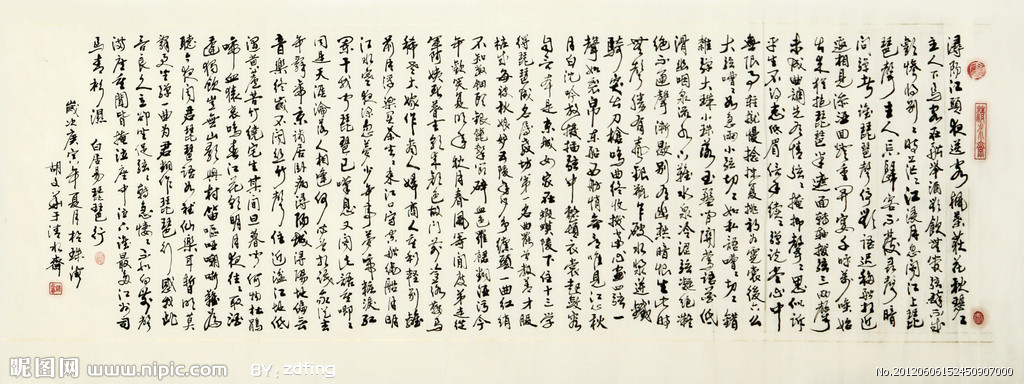 潯陽江頭夜送客楓葉荻花秋瑟〻
主人下馬客在船舉酒欲飲無管絃醉不成
歡慘將別〻時茫〻江浸月忽聞江上琵
琶聲主人忘歸客不發尋聲暗
問彈者誰琵琶聲停欲語遲移船相近
邀相見添酒回燈重開宴千呼萬喚始
出來猶抱琵琶半遮面轉軸撥絃三兩聲
未成曲調先有情絃〻掩抑聲〻思似訴
平生不得志低眉信手續〻彈說盡心中
無限事輕攏慢撚抹復挑初為霓裳後六么
大絃嘈〻如急雨小絃切〻如私語嘈〻切〻錯
雜彈大珠小珠落玉盤間關鶯語花底
滑幽咽泉流冰下難水泉冷澀絃凝絕凝
絕不通聲漸歇別有幽愁暗恨生此時
無聲勝有聲銀瓶乍破水漿迸鐵
騎突出刀槍鳴曲終收撥當心畫四絃一
聲如裂帛東船西舫悄無言唯見江心秋
月白沈吟放撥插絃中整頓衣裳起斂容
自言本是京城女家在蝦蟆陵下住十三學
得琵琶成名屬教坊第一部曲罷曾教善才服
妝成每被秋娘妒五陵年少爭纏頭一曲紅綃
不知數鈿頭銀篦擊節碎血色羅裙翻酒污今
年歡笑復明年秋月春風等閒度弟走從
軍阿姨死暮去朝來顏色故門前冷落鞍馬
稀老大嫁作商人婦商人重利輕別離
前月浮梁買茶去〻來江口守空船繞船月明
江水寒夜深忽夢少年事夢啼妝淚紅
闌干我聞琵琶已嘆息又聞此語重唧〻
同是天涯淪落人相逢何必曾相識我從去
年辭帝京謫居臥病潯陽城潯陽地僻無
音樂終歲不聞絲竹聲住近湓江地低
濕黃蘆苦竹繞宅生其間旦暮聞何物杜鵑
啼血猿哀鳴春江花朝秋月夜往〻取酒
還獨傾豈無山歌與村笛嘔啞嘲哳難為
聽今夜聞君琵琶語如聽仙樂耳暫明莫
辭更坐彈一曲為君翻作琵琶行感我此
言良久立卻坐促絃絃轉急悽〻不似向前聲
滿座重聞皆掩泣座中泣下誰最多江州司
馬青衫濕 白居易琵琶行
歲次庚寅年夏月於珠海
胡文于清水齋
昵图网 www.nipic.com BY:zdfing
No.20120606152450907000